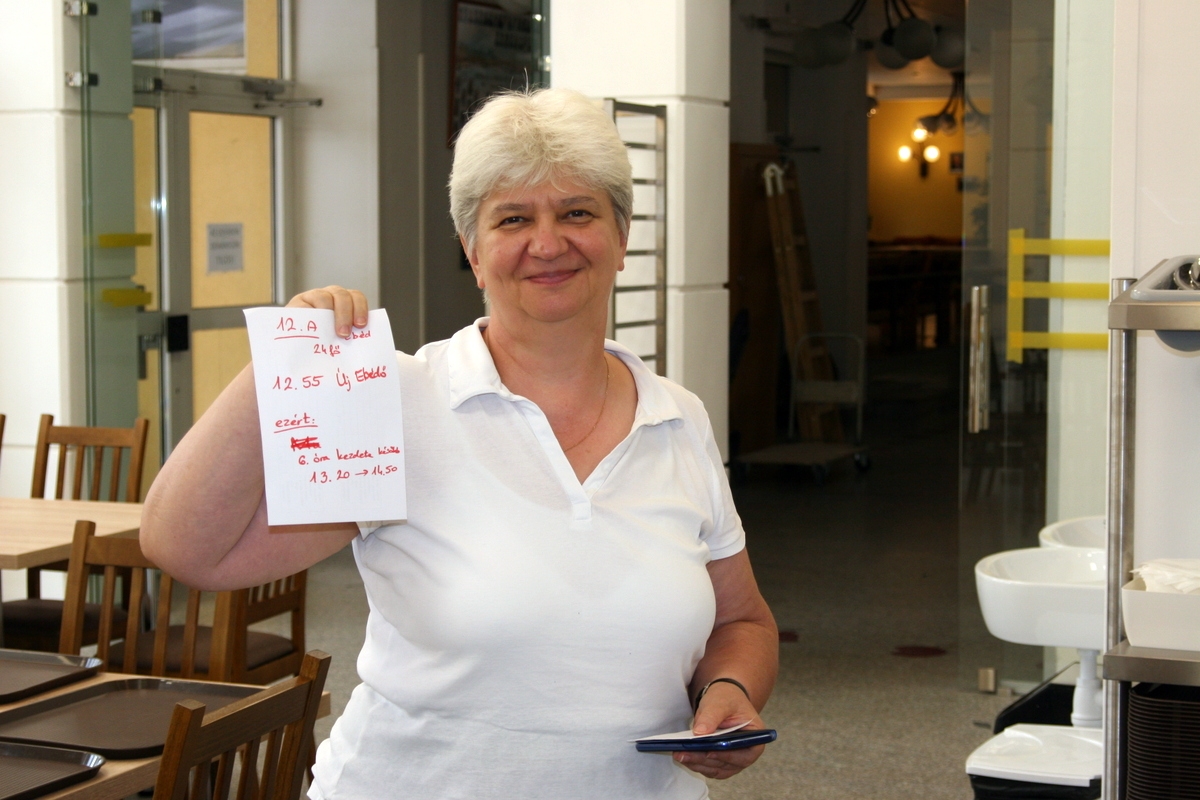 12. A ebéd
24 fő
12.55 Új Ebédlő
ezért:
6. óra kezdete
13.20 → 14.50